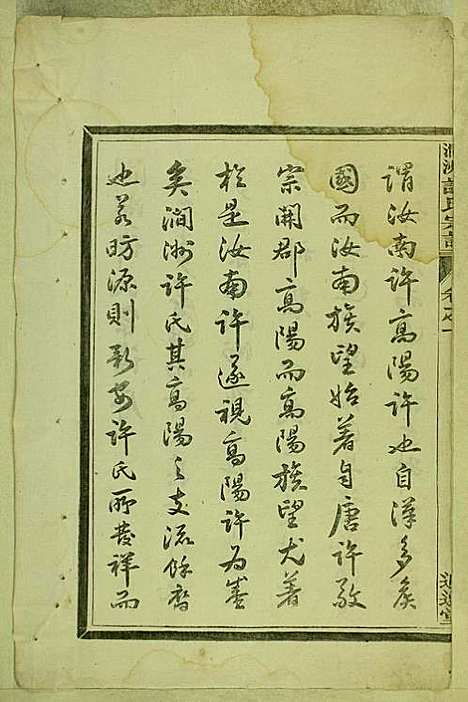 澗洲許氏宗譜
卷之一
謂汝南許高陽許也自漢多矦
國而汝南族望始着自唐許敬
宗開郡高陽而高陽族望尤著
於是汝南許遂視高陽許為盛
矣澗洲許氏其高陽之支流餘裔
也若昉源則新安許氏所發祥而